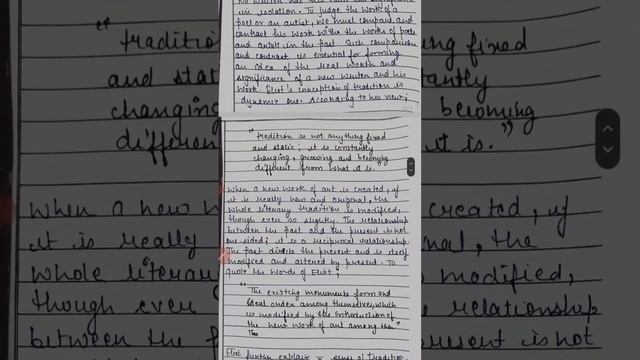 No writer has his value and significance
in isolation. To judge the work of a
poet or an artist, we must compare and
contrast his work with the works of poets
and artist in the past. Such comparison
and contrast is essential for forming
an idea of the real worth and
significance of a new writer and his
work. Eliot's conception of tradition is
dynamic one. According to his view;
"tradition is not anything fixed
and static; it is constantly
changing, growing and becoming
different from what it is.
When a new work of art is created, if
it is really new and original, the
whole literary tradition is modified,
though ever so slightly. The relationship
between the past and the present is not
one sided; it is a reciprocal relationship.
The past directs the present and is itself
modified and altered by present. To
quote the words of Eliot;
"The existing monuments form and
ideal order among themselves, which
is modified by the introduction of
the new work of art among them"
Eliot further explain sense of tradition,
"tradition
and stat
changing
differen
When a new w
it is really
whole literar
though ever
between the p
ing fixed
stantly
becoming
it is."
created, if
nal, the
modified,
relationship
present is not